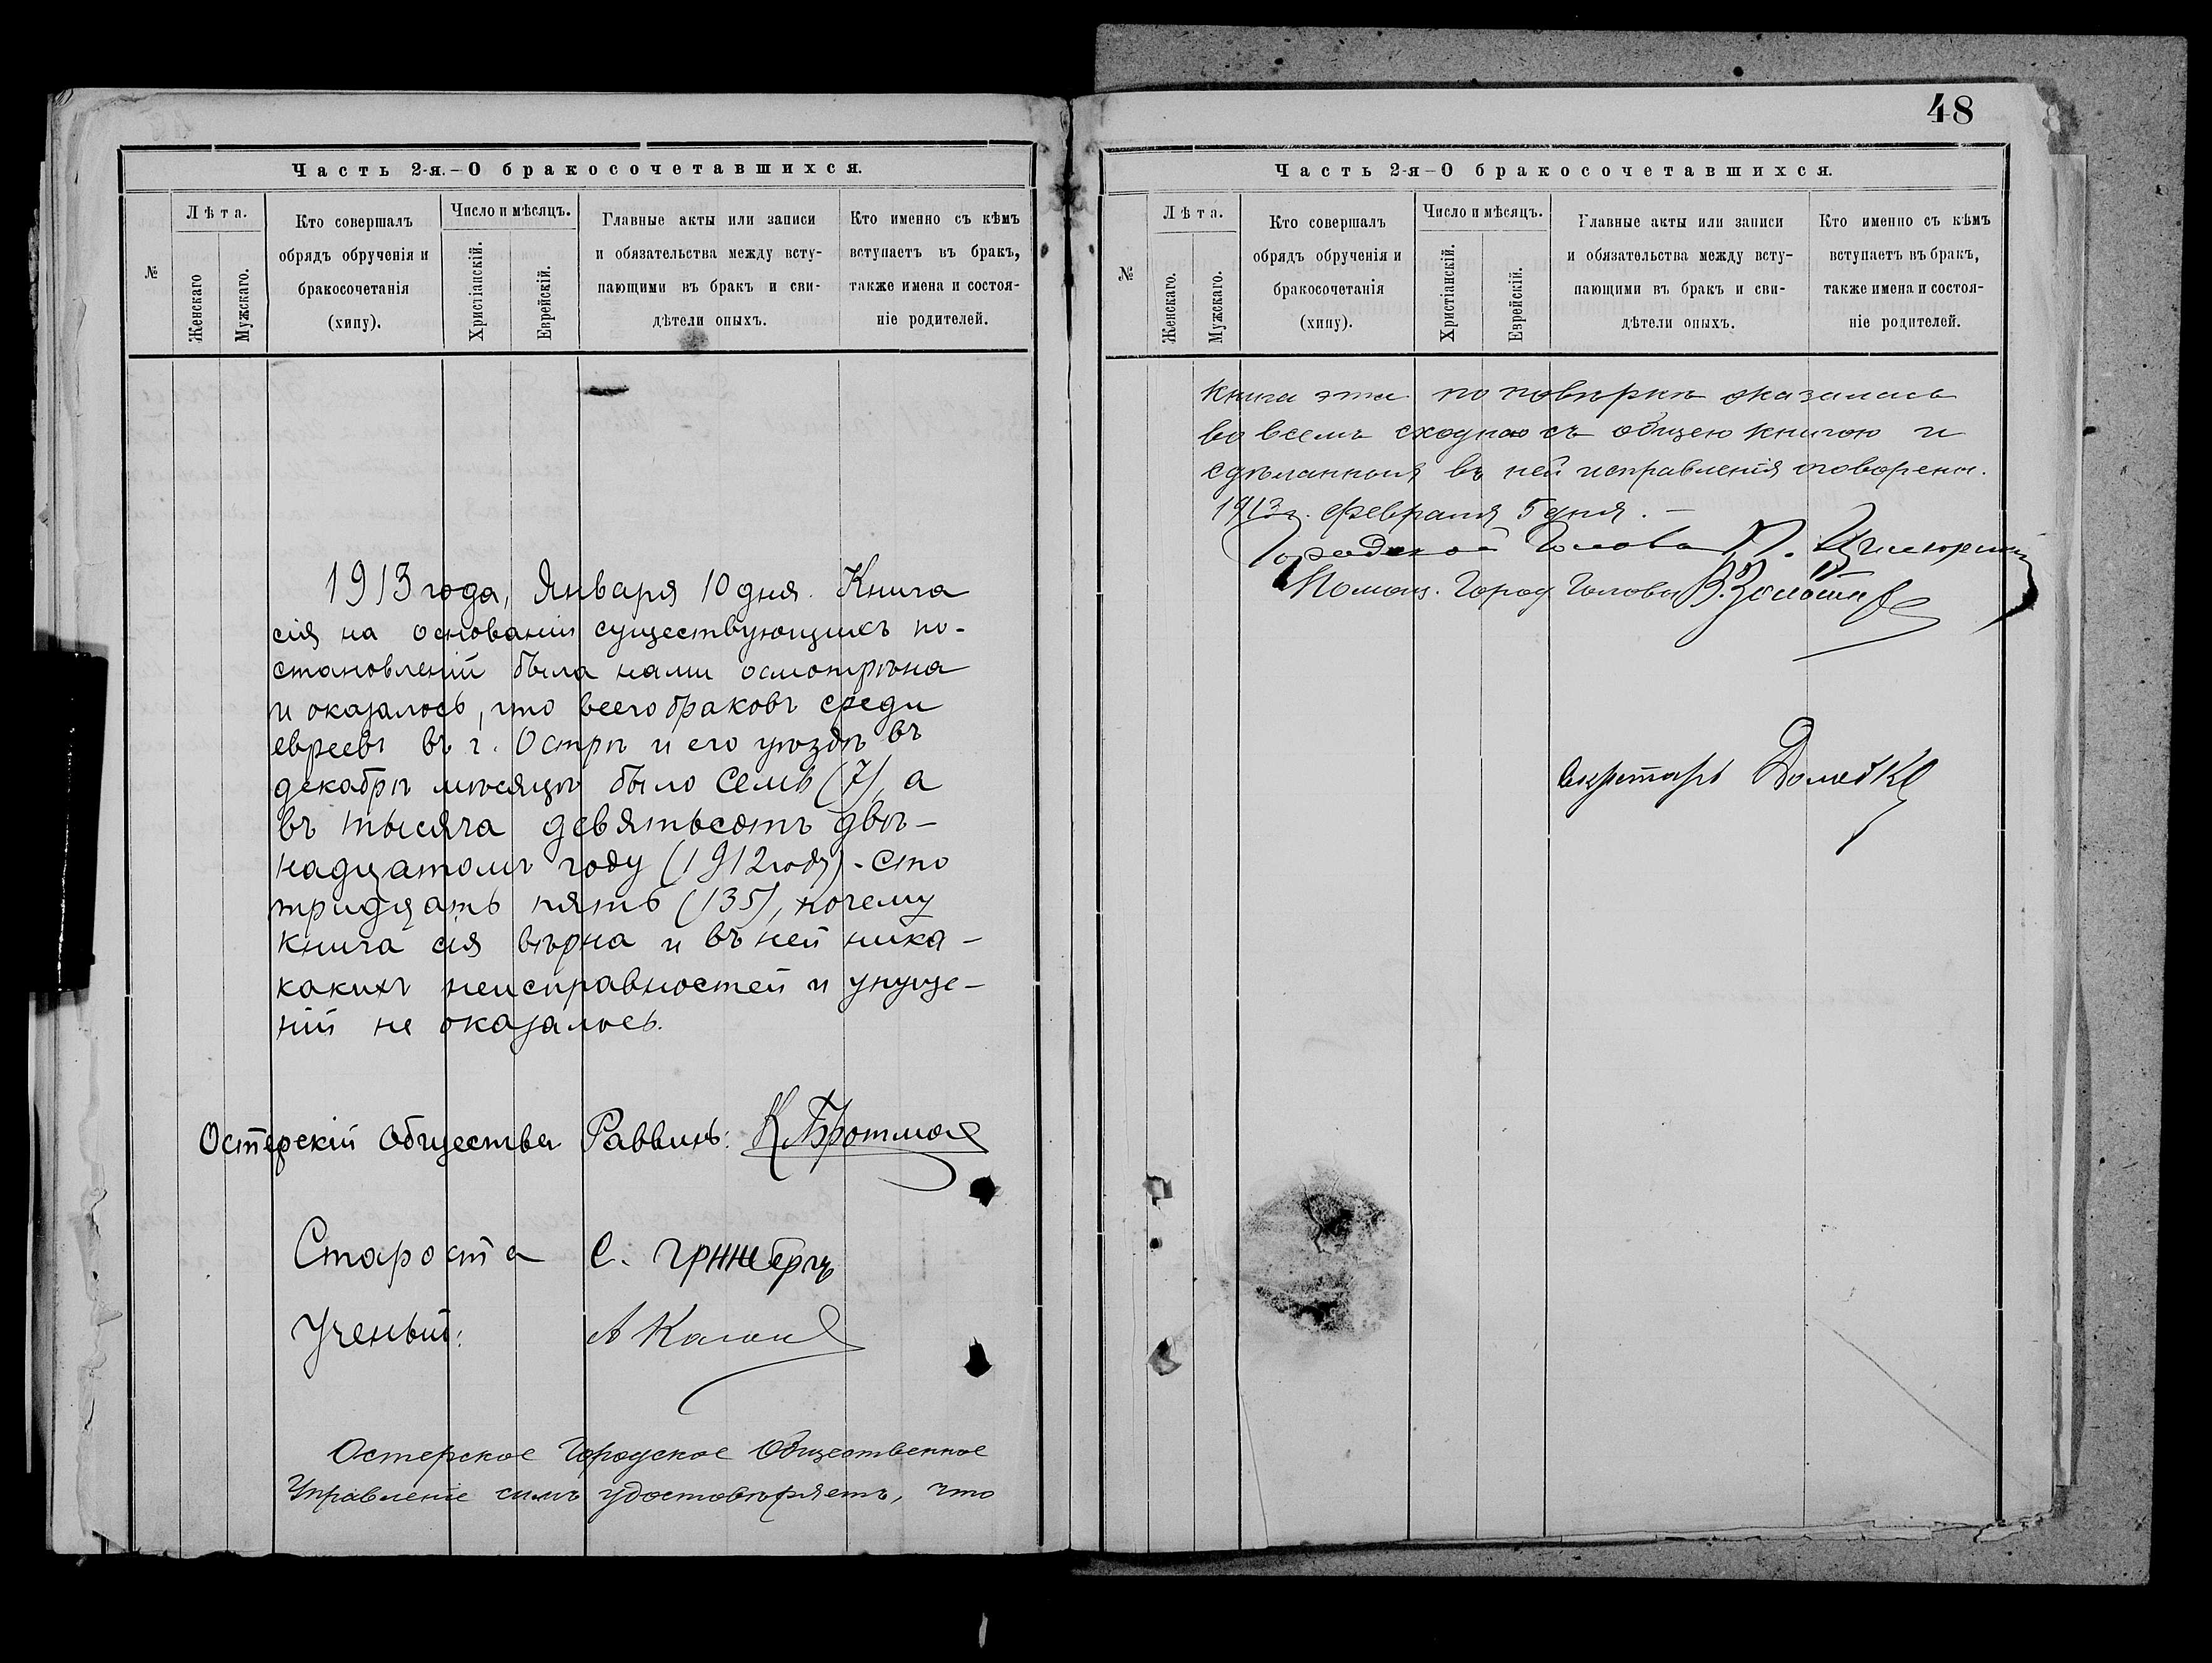 Часть 2-я.–О бракосочетавшихся.
№
Лѣта.
Женскаго
Мужскаго.
Кто совершалъ
обрядъ обрученія и
бракосочетанія
(хипу).
Число и мѣсяцъ.
Христіанскій.
Еврейскій.
Главные акты или записи
и обязательства между всту-
пающими въ бракъ и сви-
дѣтели оныхъ.
Кто именно съ кѣмъ
вступаетъ въ бракъ,
также имена и состоя-
ніе родителей.
1913 года, Января 10 дня. Книга
сія на основаніи существующихъ по-
становленій была нами осмотрѣна
и оказалось, что всего браковъ среди
евреевъ въ г. Острѣ и его уѣздѣ въ
декабрѣ мѣсяцѣ было Семь (7), а
въ тысяча девятьсотъ двѣ-
надцатомъ году (1912 году) - сто
тридцать пять (135), почему
книга сія вѣрна и въ ней ника-
какихъ неисправностей и упуще-
ній не оказалось.
Остерскій Обществен Раввинъ: К. Бротман
Староста С. Гринбергъ
Ученый: А Каган
Остерское Городское Общественное
Управленіе симъ удостовѣряетъ, что
48
Часть 2-я–О бракосочетавшихся.
№
Лѣта.
Женскаго.
Мужскаго.
Кто совершалъ
обрядъ обрученія и
бракосочетанія
(хипу).
Число и мѣсяцъ.
Христіанскій.
Еврейскій.
Главные акты или записи
и обязательства между всту-
пающими въ бракъ и сви-
дѣтели оныхъ.
Кто именно съ кѣмъ
вступаетъ въ бракъ,
также имена и состоя-
ніе родителей.
книга эта по повѣркѣ оказалась
во всемъ сходною съ общею книгою и
сдѣланныя въ ней исправленія оговорены.
1913 г. февраля 5 дня. –
Городской Голова
Помощ. Город. Головы В.
Секретарь